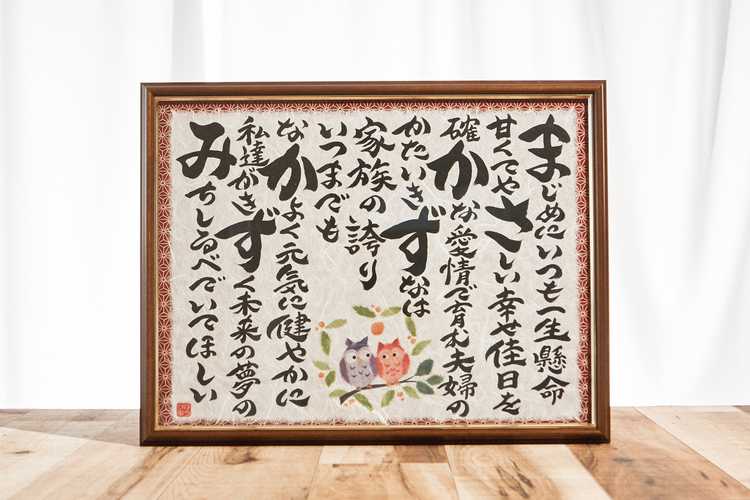 まじめにいつも一生懸命
甘くてやさしい幸せ佳日を
確かな愛情で育む夫婦の
かたいきずなは
家族の誇り
いつまでも
なかよく元気に健やかに
私達がきずく未来の夢の
みちしるべでいてほしい